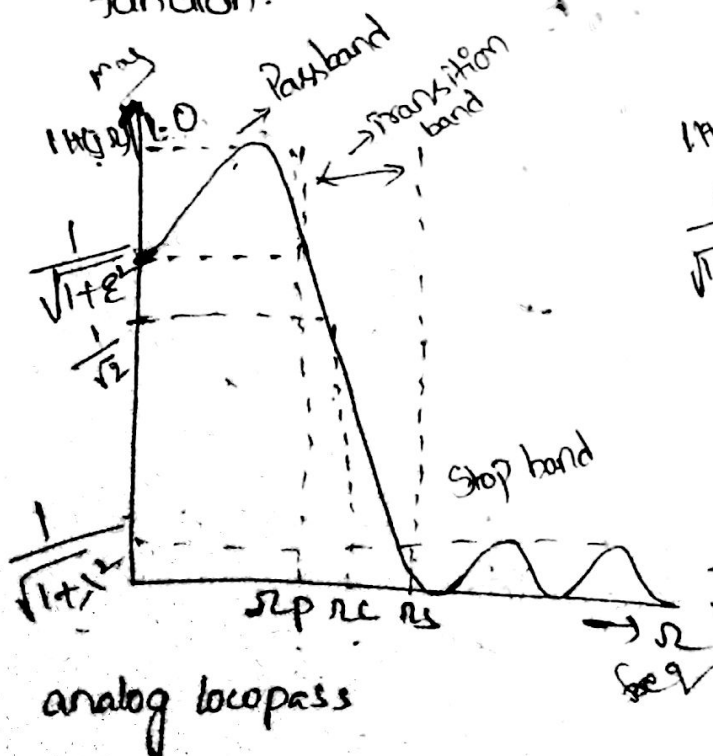 function.
mag
Passband
Transition
band
1
√1+ε²
1
√2
Stop band
1
√1+λ²
Ωp Ωc Ωs
→ Ω
freq
analog locopass